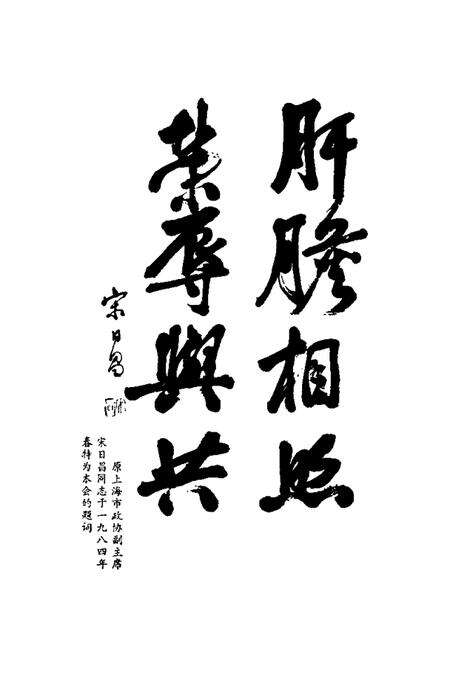 肝膽相照
榮辱與共
宋日昌
原上海市政协副主席
宋日昌同志于一九八四年
春特为本会的题词